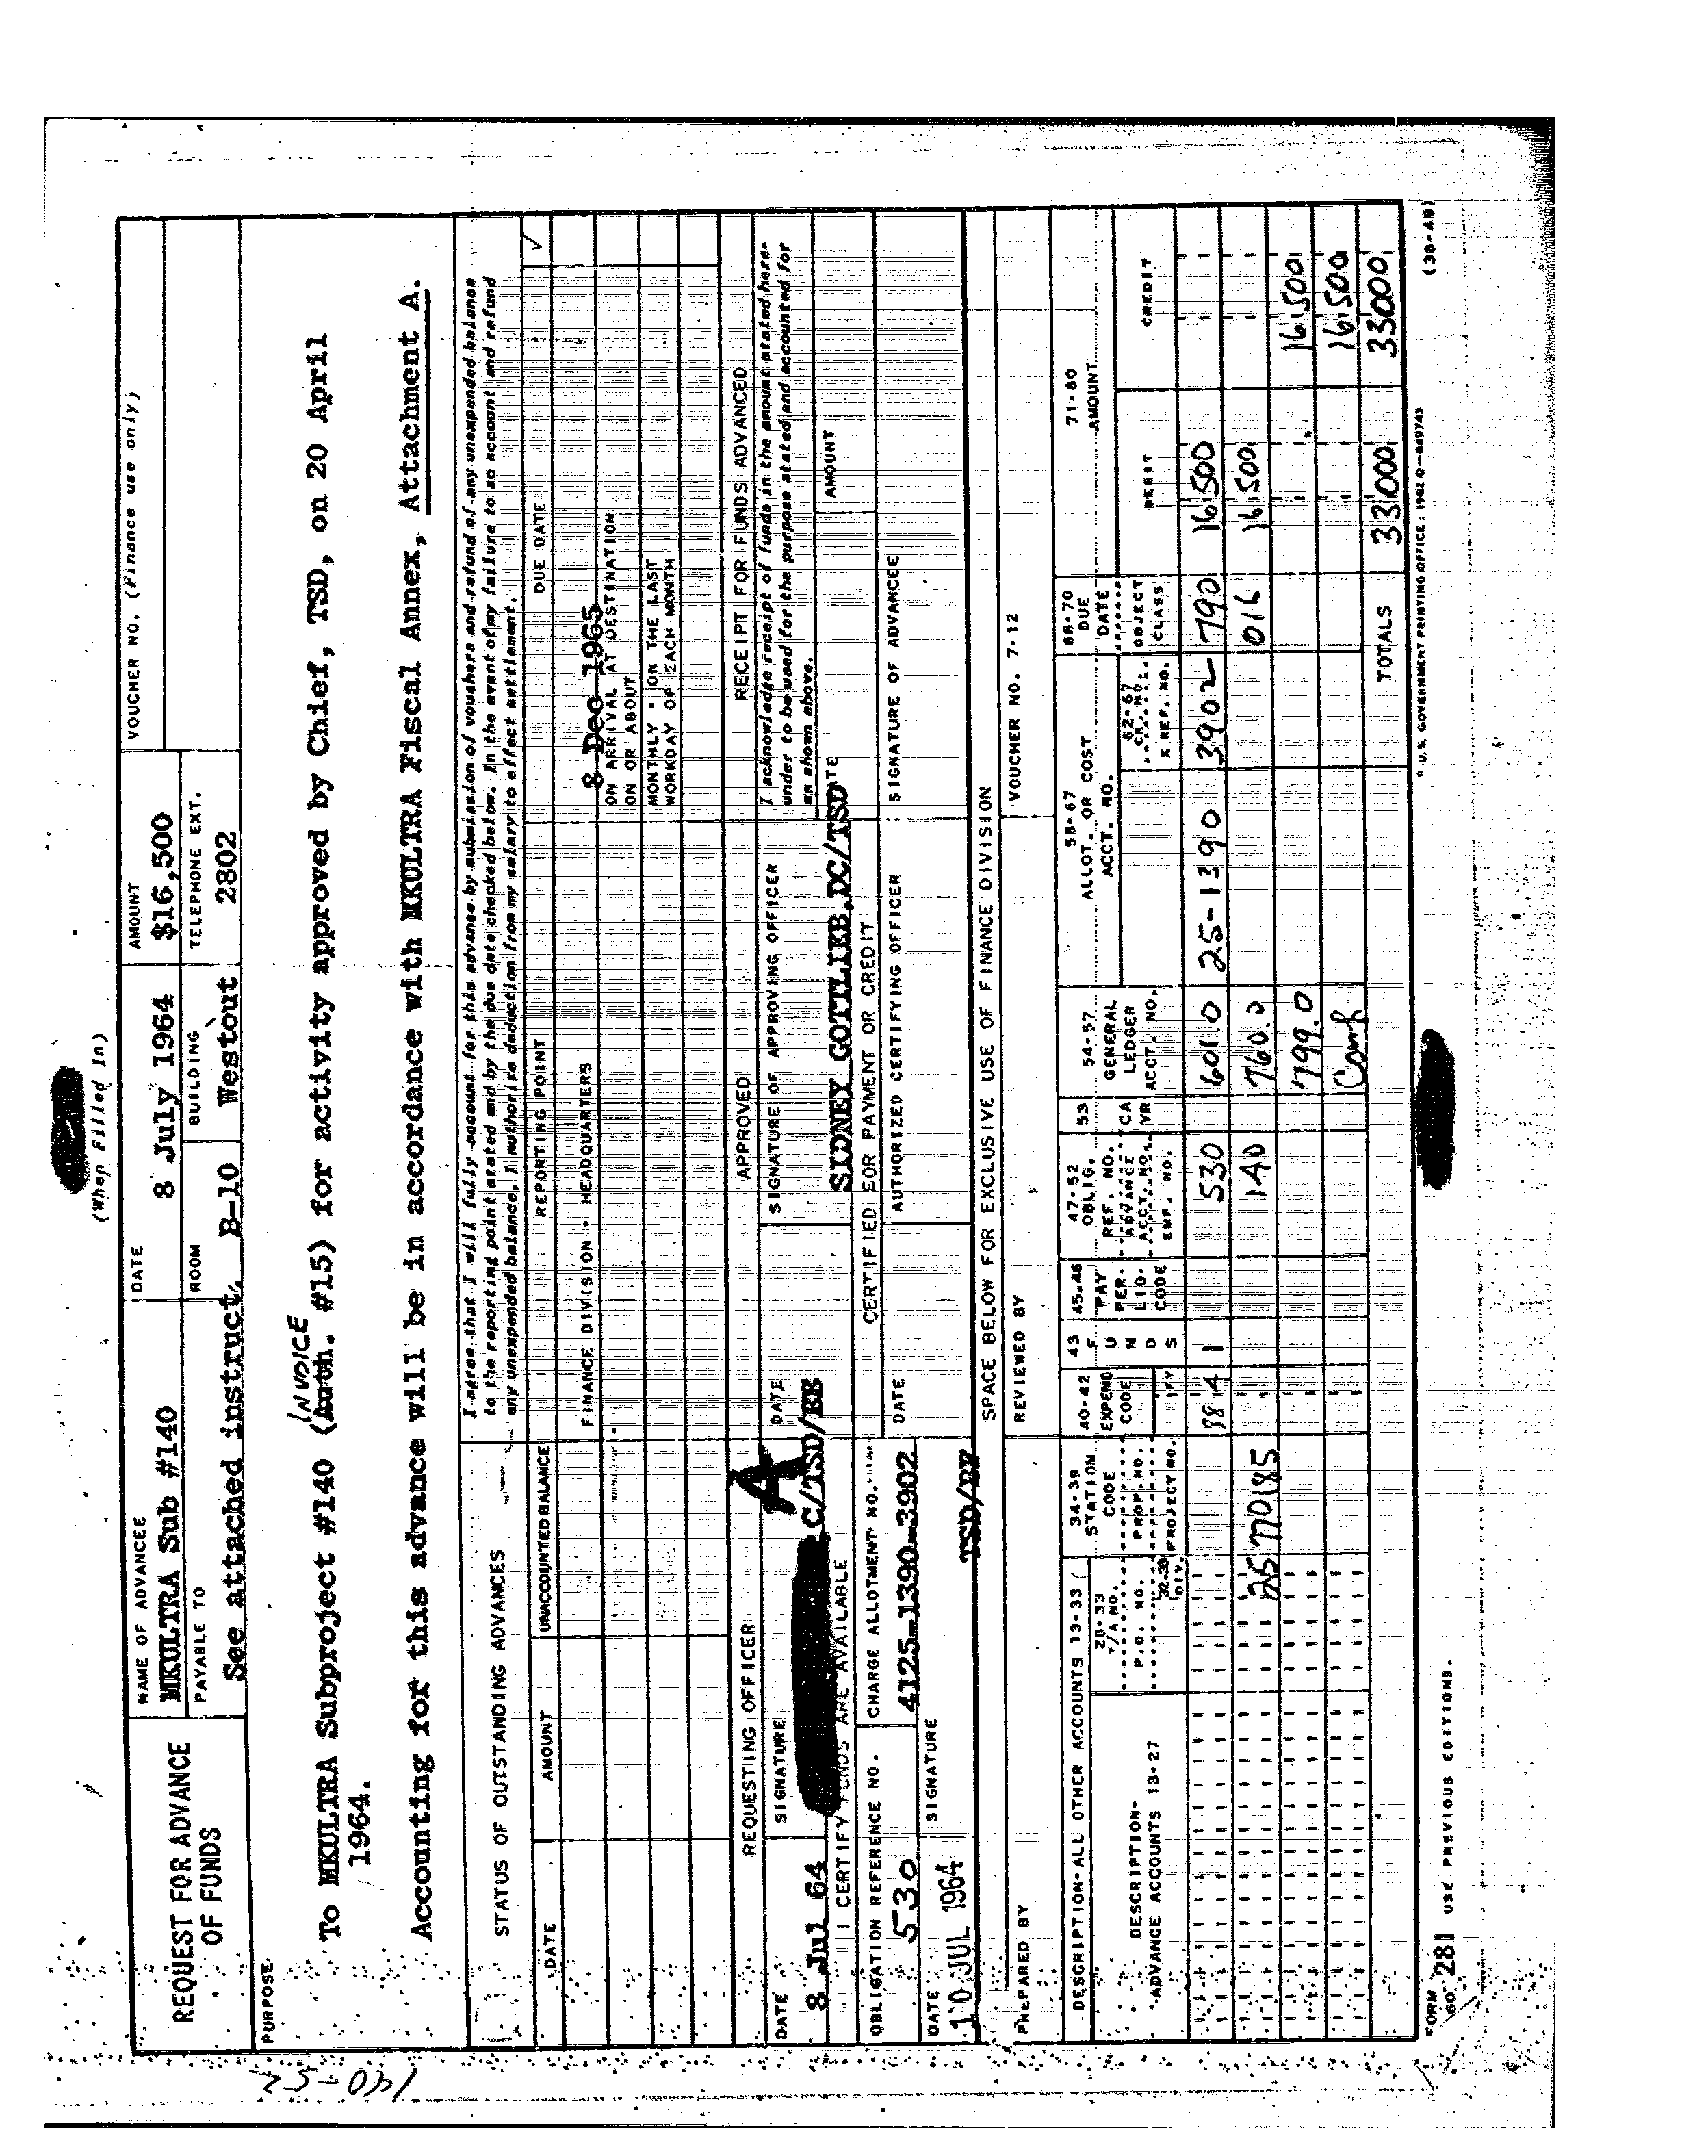 (When Filled In)
REQUEST FOR ADVANCE
OF FUNDS
NAME OF ADVANCEE
MKULTRA Sub #140
DATE
8 July 1964
AMOUNT
$16,500
VOUCHER NO. (Finance use only)
PAYABLE TO
See attached instruct.
ROOM
B-10
BUILDING
Westout
TELEPHONE EXT.
2802
PURPOSE
INVOICE
To MKULTRA Subproject #140 (Auth. #15) for activity approved by Chief, TSD, on 20 April
1964.
Accounting for this advance will be in accordance with MKULTRA Fiscal Annex, Attachment A.
STATUS OF OUTSTANDING ADVANCES
I agree that I will fully account for this advance by submission of vouchers and refund of any unexpended balance
to the reporting point stated and by the due date checked below. In the event of my failure to so account and refund
any unexpended balance, I authorize deduction from my salary to effect settlement.
DATE
AMOUNT
UNACCOUNTED BALANCE
REPORTING POINT
DUE DATE
✓
FINANCE DIVISION - HEADQUARTERS
8 Dec 1965
ON ARRIVAL AT DESTINATION
ON OR ABOUT
MONTHLY - ON THE LAST
WORKDAY OF EACH MONTH
REQUESTING OFFICER
APPROVED
RECEIPT FOR FUNDS ADVANCED
DATE
8 Jul 64
SIGNATURE
A
C/TSD/BB
DATE
SIGNATURE OF APPROVING OFFICER
SIDNEY GOTTLIEB, DC/TSD
I acknowledge receipt of funds in the amount stated here-
under to be used for the purpose stated and accounted for
as shown above.
DATE
AMOUNT
I CERTIFY FUNDS ARE AVAILABLE
CERTIFIED FOR PAYMENT OR CREDIT
OBLIGATION REFERENCE NO.
530
CHARGE ALLOTMENT NO.
4125-1390-3902
DATE
AUTHORIZED CERTIFYING OFFICER
SIGNATURE OF ADVANCEE
DATE
10 JUL 1964
SIGNATURE
TSD/BB
SPACE BELOW FOR EXCLUSIVE USE OF FINANCE DIVISION
PREPARED BY
REVIEWED BY
VOUCHER NO. 7-12
DESCRIPTION-ALL OTHER ACCOUNTS 13-33
DESCRIPTION-
ADVANCE ACCOUNTS 13-27
28-33
T/A NO.
P.O. NO.
32-33
DIV.
34-39
STATION
CODE
PROP. NO.
PROJECT NO.
40-42
EXPEND
CODE
FY
43
F
U
N
D
S
45-46
PAY
PER.
LIQ.
CODE
47-52
OBLIG.
REF. NO.
ADVANCE
ACCT. NO.
EMP. NO.
53
CA
YR
54-57
GENERAL
LEDGER
ACCT. NO.
58-67
ALLOT. OR COST
ACCT. NO.
62-67
CK. NO.
X REF. NO.
68-70
DUE
DATE
OBJECT
CLASS
71-80
AMOUNT
DEBIT
CREDIT
4 1 530 601.0 25-1390 3902 790 16 500
25 770185 140 760.0 016 16 500
799.0 16 500
16 500
TOTALS 33000 33000
FORM
281 USE PREVIOUS EDITIONS.
* U.S. GOVERNMENT PRINTING OFFICE: 1962 O—649743
(38-49)
140-52